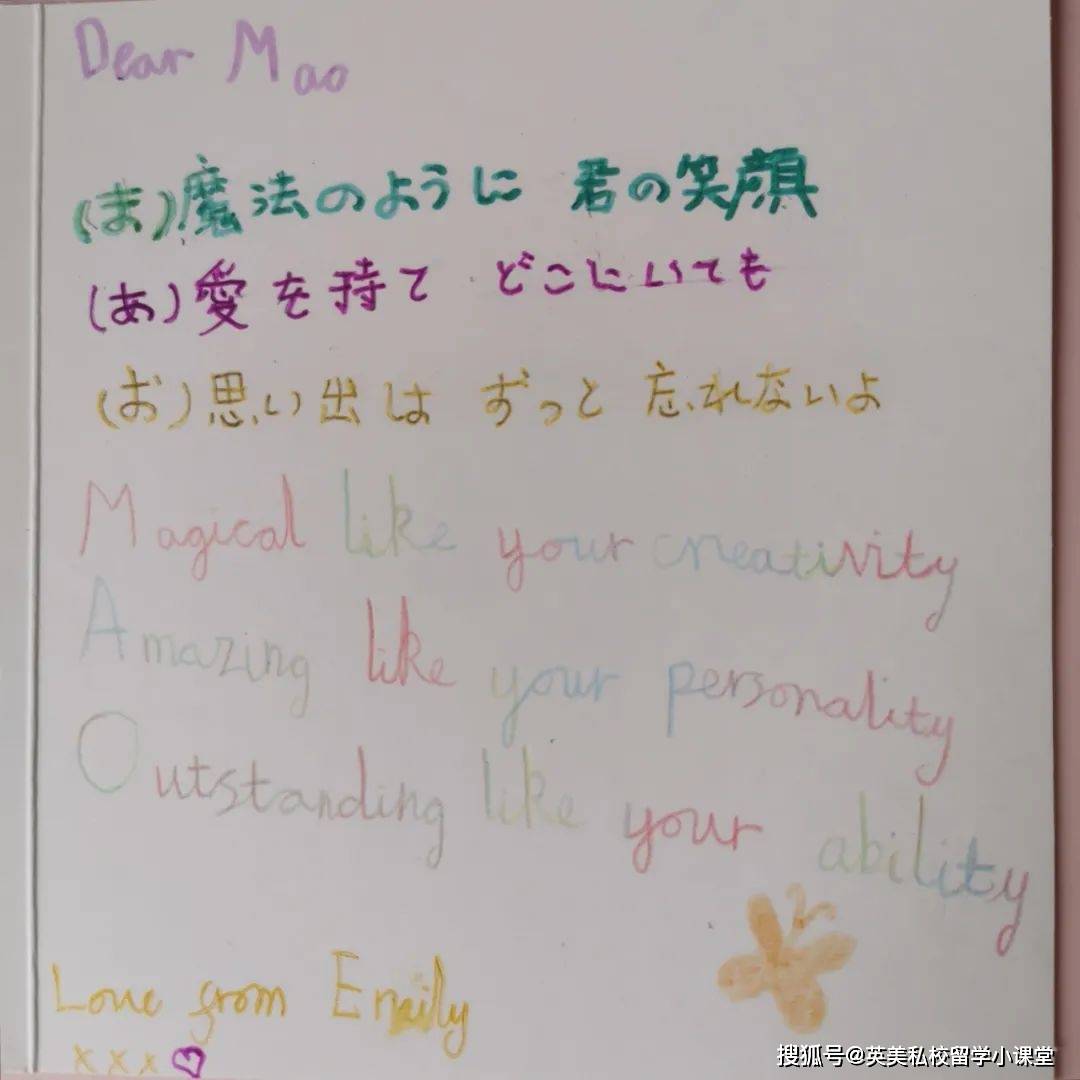 Dear Mao
(ま)魔法のように 君の笑顔
(あ)愛を持て どこにいても
(お)思い出は ずっと 忘れないよ
Magical like your creativity
Amazing like your personality
Outstanding like your ability
Love from Emily
x x x
搜狐号@英美私校留学小课堂